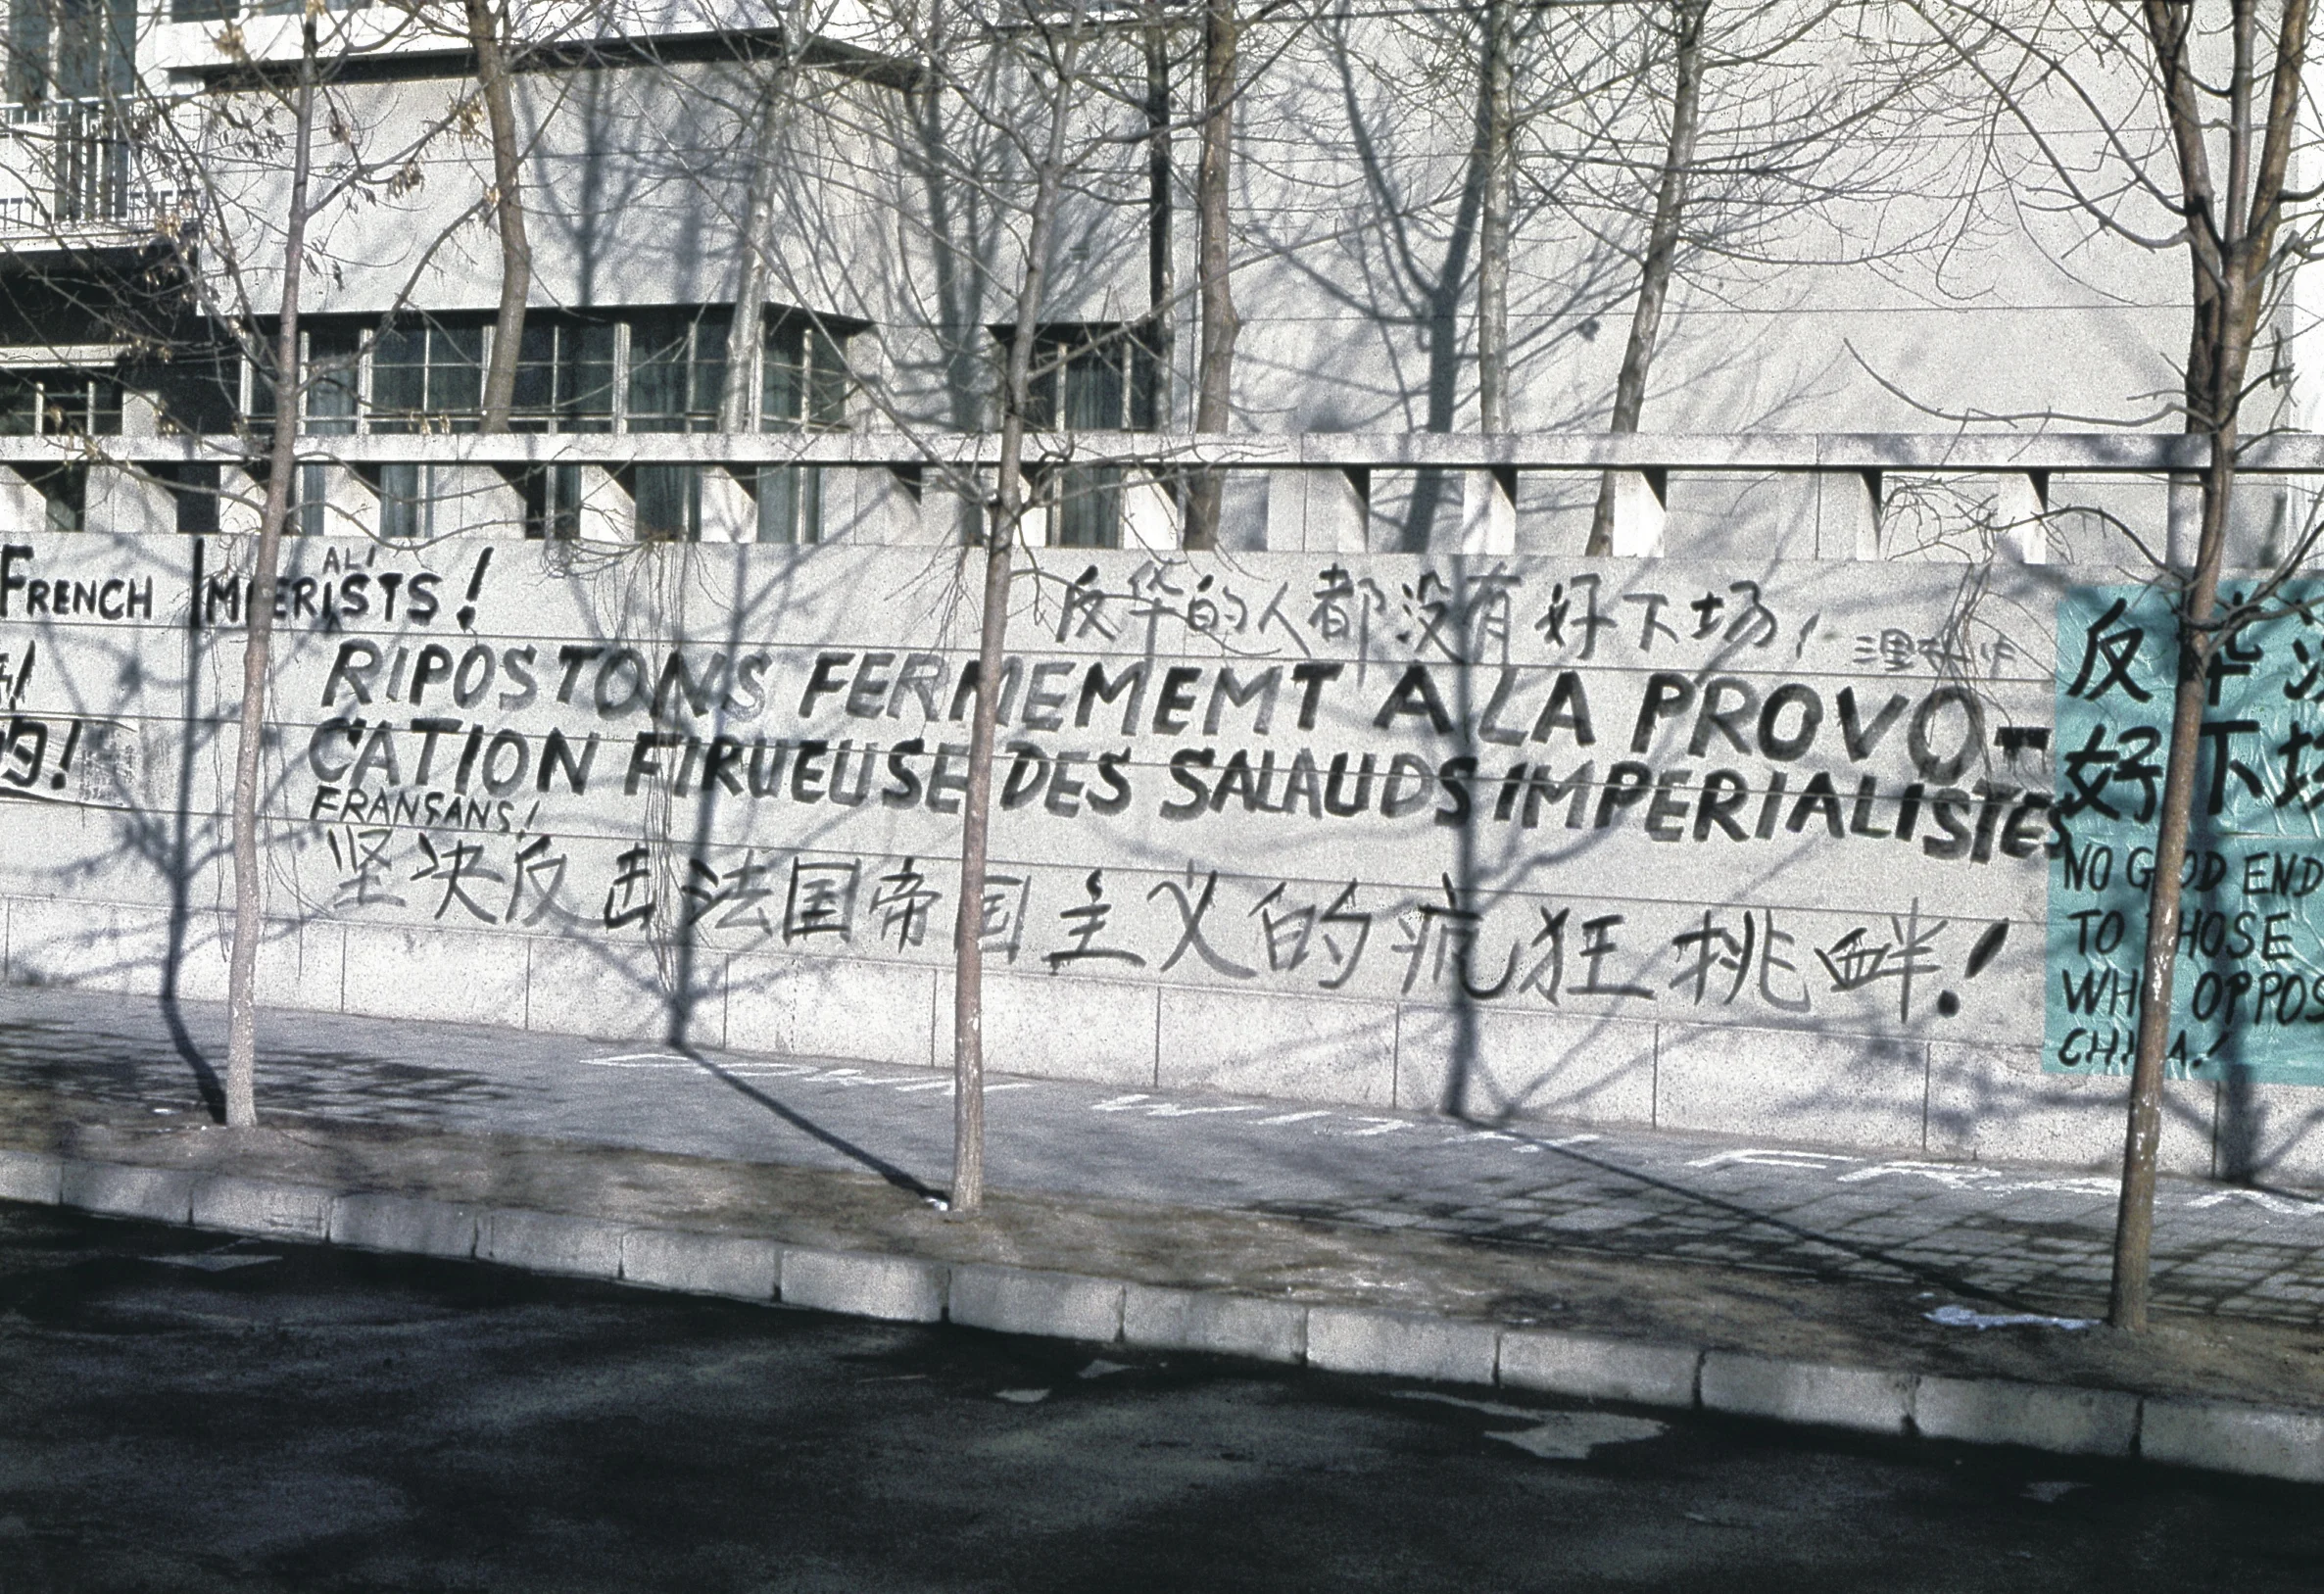 FRENCH IMPERIALISTS!
的!
反华的人都没有好下场!
RIPOSTONS FERMEMEMT A LA PROVO-
CATION FIRUEUSE DES SALAUDS IMPERIALISTES
FRANSANS!
坚决反击法国帝国主义的疯狂挑衅!
反华没
好下场
NO GOOD END
TO THOSE
WHO OPPOS
CHINA!
DOWN WITH FRAN